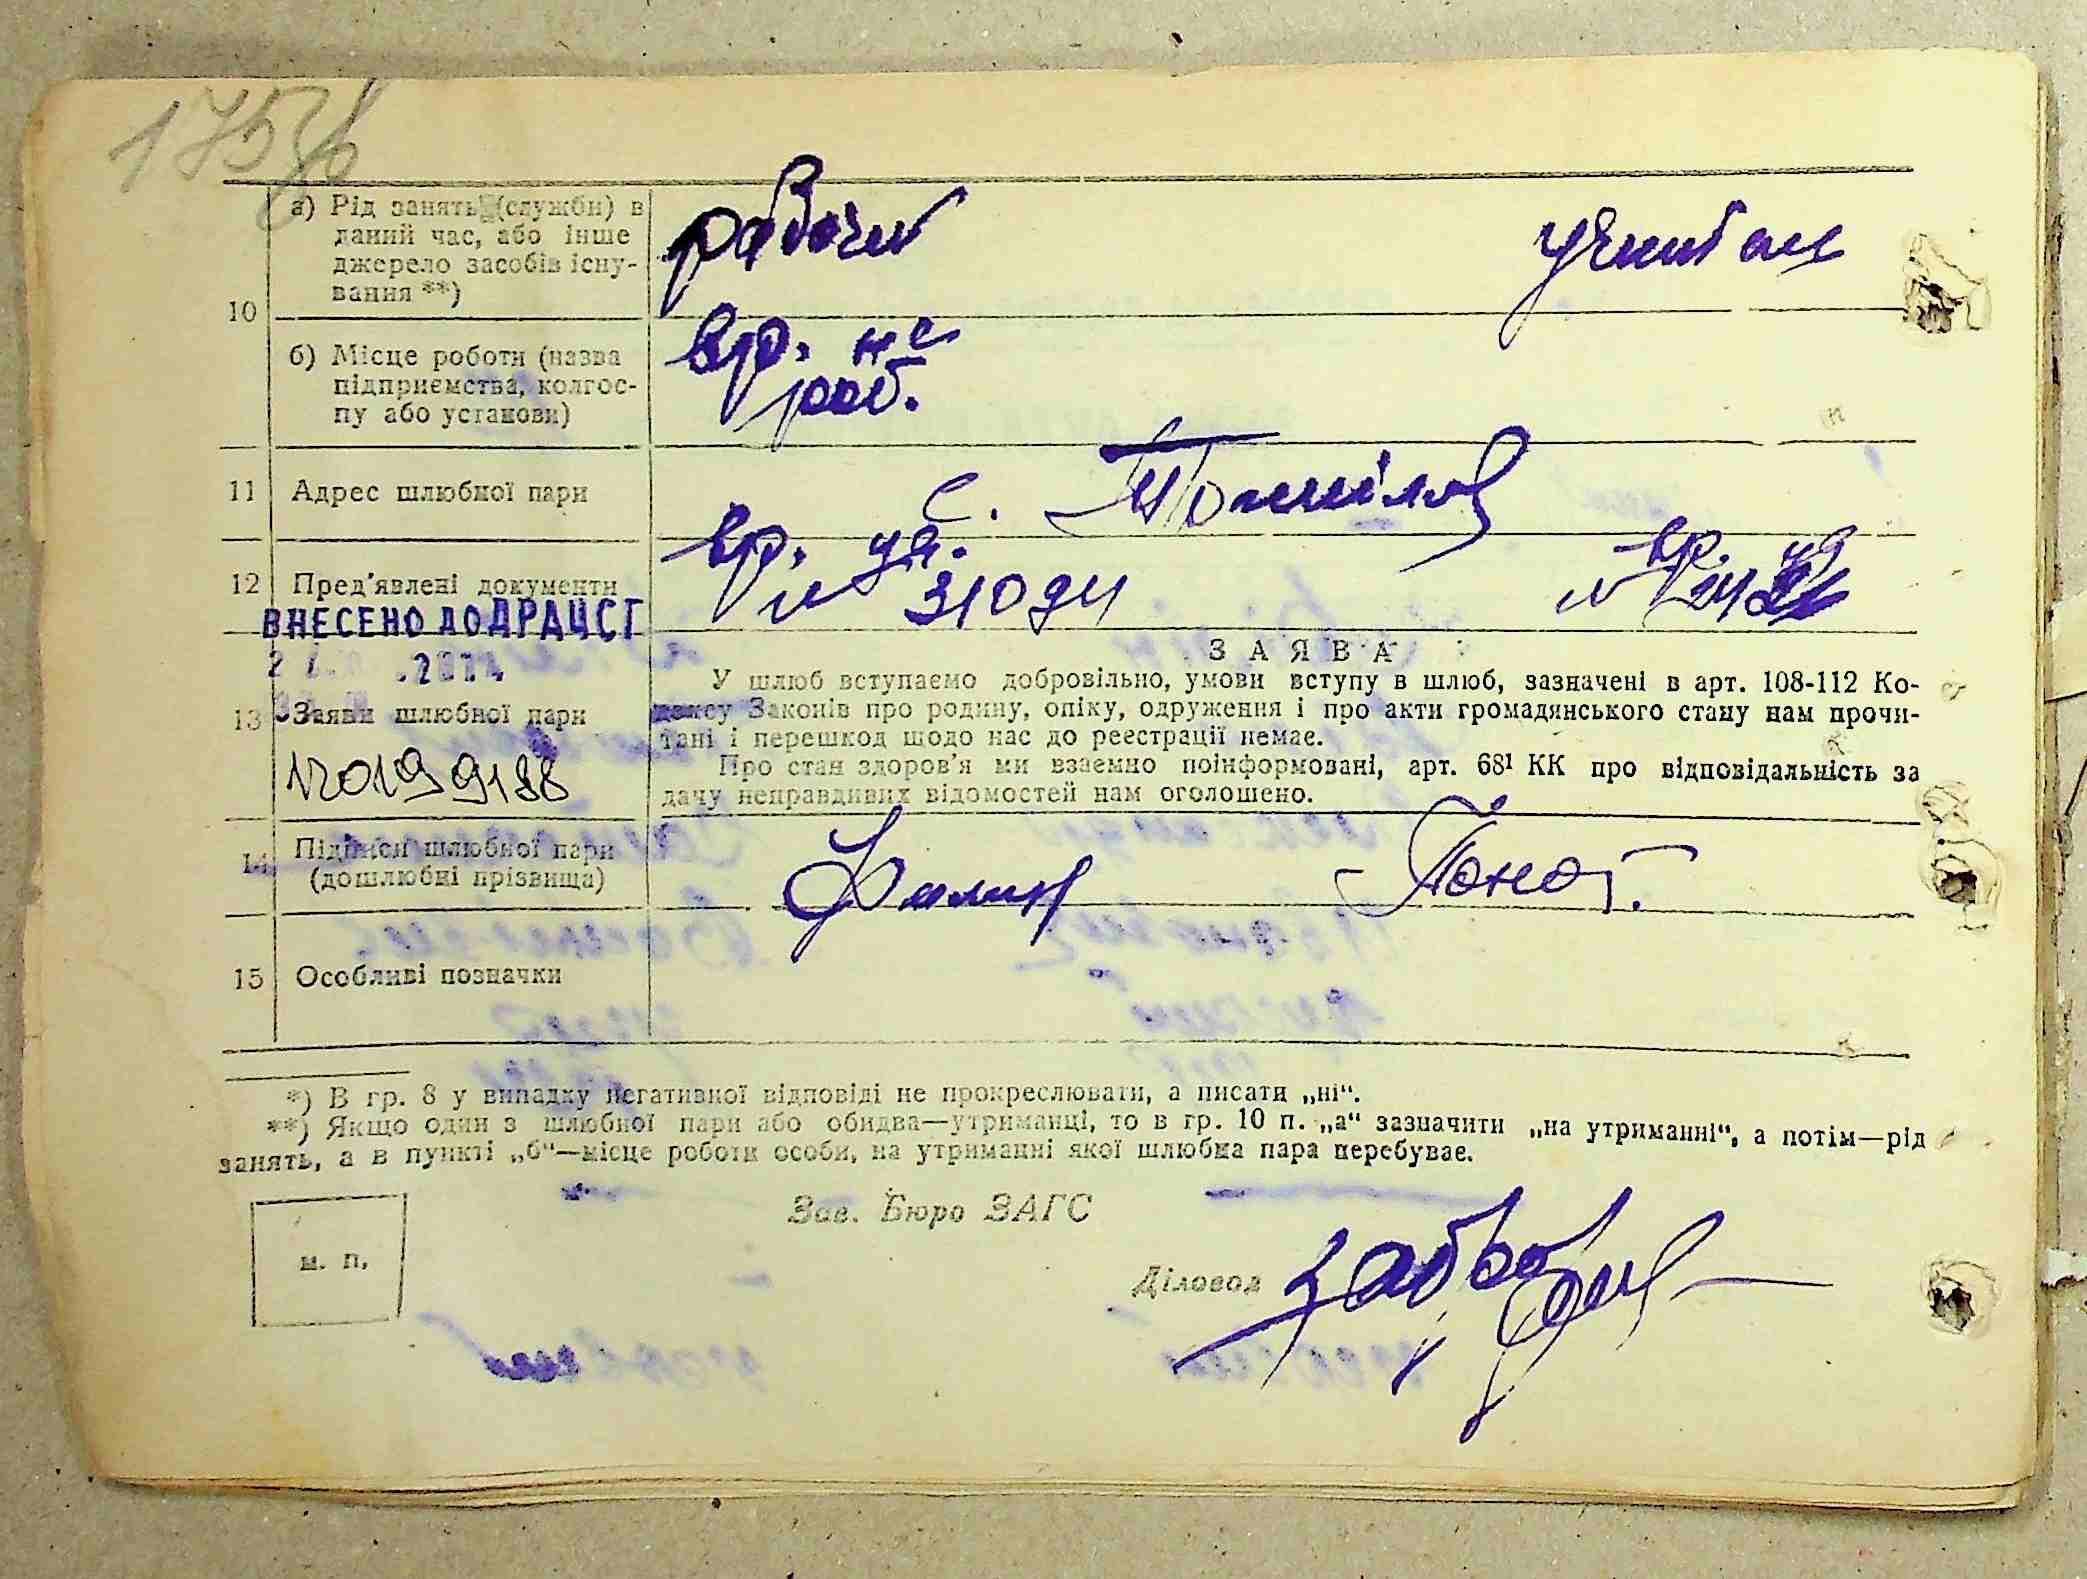 а) Рід занять (служби) в
даний час, або інше
джерело засобів існу-
вання **)
рабочий
10
б) Місце роботи (назва
підприємства, колгос-
пу або установи)
вр. не
раб.
11 Адрес шлюбної пари
с.
12 Пред'явлені документи
вр. уд.
№ 31094
вр. уд
№
ВНЕСЕНО ДО ДРАЦСГ
13 Заяви шлюбної пари
170199188
ЗАЯВА
У шлюб вступаємо добровільно, умови вступу в шлюб, зазначені в арт. 108-112 Ко-
дексу Законів про родину, опіку, одруження і про акти громадянського стану нам прочи-
тані і перешкод щодо нас до реєстрації немає.
Про стан здоров'я ми взаємно поінформовані, арт. 68¹ КК про відповідальність за
дачу неправдивих відомостей нам оголошено.
14 Підписи шлюбної пари
(дошлюбні прізвища)
15 Особливі позначки
*) В гр. 8 у випадку негативної відповіді не прокреслювати, а писати „ні“.
**) Якщо один з шлюбної пари або обидва—утриманці, то в гр. 10 п. „а“ зазначити „на утриманні“, а потім—рід
занять, а в пункті „б“—місце роботи особи, на утриманні якої шлюбна пара перебуває.
Зав. Бюро ЗАГС
м. п.
Діловод